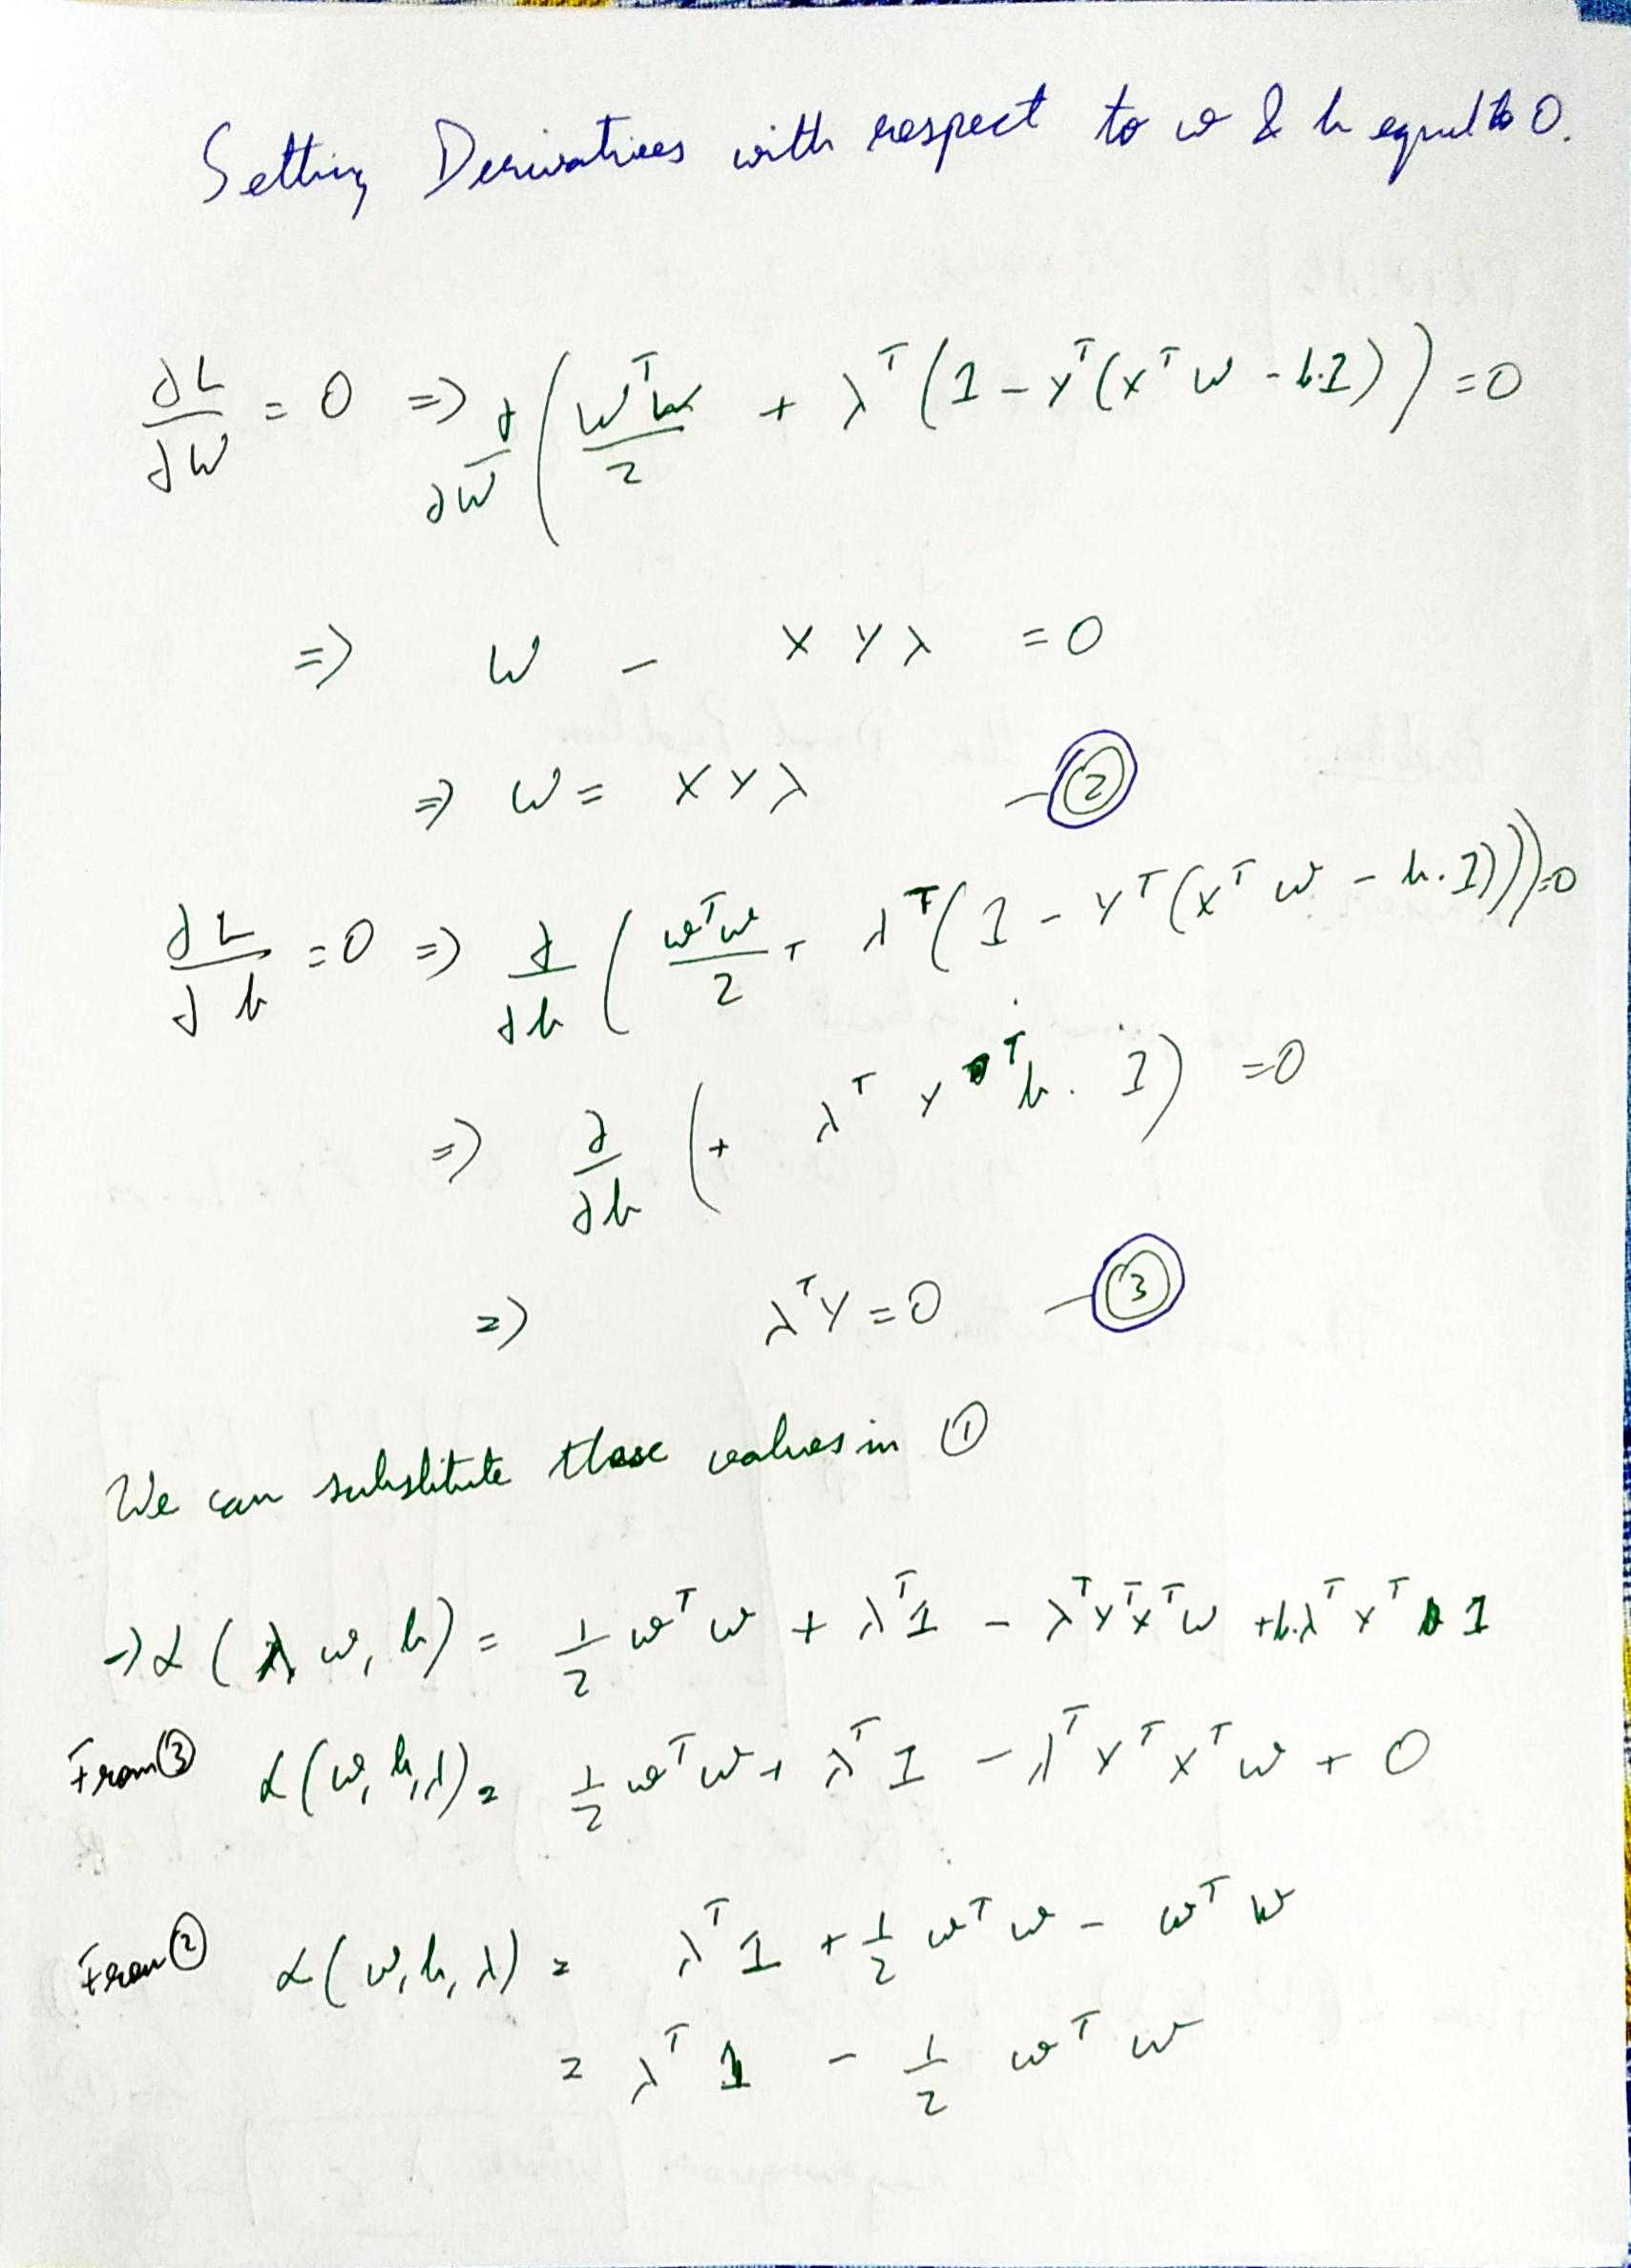 Setting Derivatives with respect to w & b equal to 0.
∂L/∂W = 0 => ∂/∂W ( WᵀW/2 + λᵀ (1 - Yᵀ(Xᵀ W - b.1) ) = 0
=> W - X Y λ = 0
=> W = X Y λ - ②
∂L/∂b = 0 => ∂/∂b ( wᵀw/2 + λᵀ( 1 - Yᵀ(Xᵀ w - b.1))) = 0
=> ∂/∂b (+ λᵀ Yᵀ b. 1) = 0
=> λᵀY = 0 - ③
We can substitute these values in ①
→ L ( w, b) = 1/2 wᵀ w + λᵀ1 - λᵀYᵀXᵀW + b.λᵀ Yᵀ 1
From ③ L(w, b, λ) = 1/2 wᵀw + λᵀ 1 - λᵀ Yᵀ Xᵀ w + 0
From ② L(w, b, λ) = λᵀ 1 + 1/2 wᵀ w - wᵀ w
= λᵀ 1 - 1/2 wᵀ w